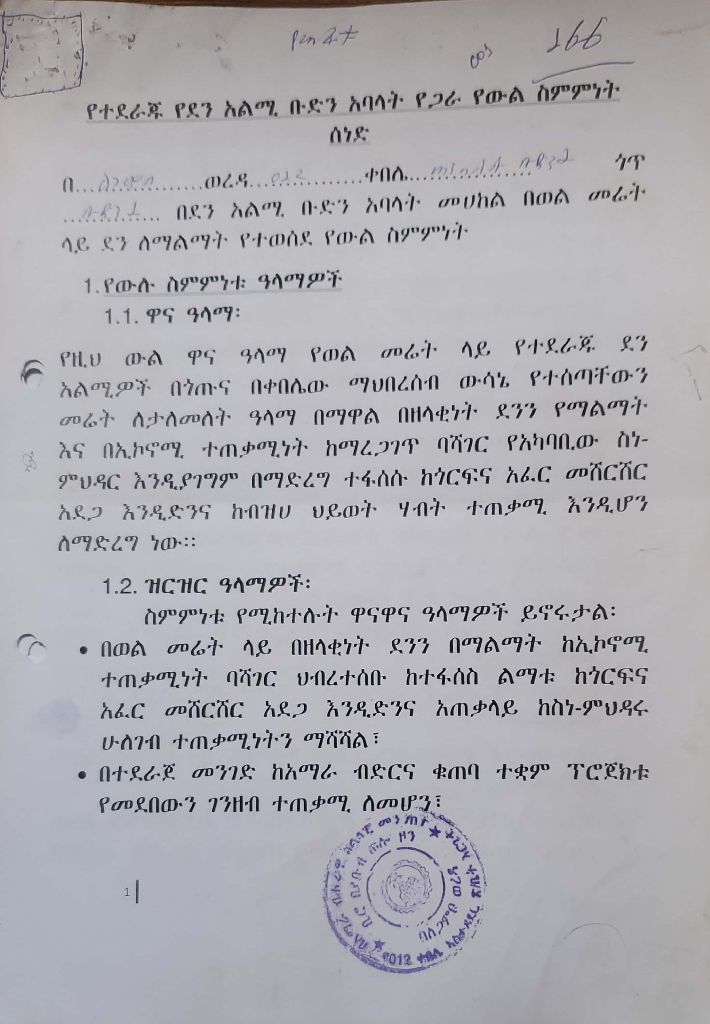 166
የተደራጁ የደን አልሚ ቡድን አባላት የጋራ የውል ስምምነት
ሰነድ
በ... ........ወረዳ... ............ቀበሌ... ጎጥ
... በደን አልሚ ቡድን አባላት መሀከል በወል መሬት
ላይ ደን ለማልማት የተወሰደ የውል ስምምነት
1. የውሉ ስምምነቱ ዓላማዎች
1.1. ዋና ዓላማ፡
የዚህ ውል ዋና ዓላማ የወል መሬት ላይ የተደራጁ ደን
አልሚዎች በጎጡና በቀበሌው ማህበረሰብ ውሳኔ የተሰጣቸውን
መሬት ለታለመለት ዓላማ በማዋል በዘላቂነት ደንን የማልማት
እና በኢኮኖሚ ተጠቃሚነት ከማረጋገጥ ባሻገር የአካባቢው ስነ-
ምህዳር እንዲያገግም በማድረግ ተፋሰሱ ከጎርፍና አፈር መሸርሸር
አደጋ እንዲድንና ከብዝሀ ህይወት ሃብት ተጠቃሚ እንዲሆን
ለማድረግ ነው፡፡
1.2. ዝርዝር ዓላማዎች፡
ስምምነቱ የሚከተሉት ዋናዋና ዓላማዎች ይኖሩታል፡
• በወል መሬት ላይ በዘላቂነት ደንን በማልማት ከኢኮኖሚ
ተጠቃሚነት ባሻገር ህብረተሰቡ ከተፋሰስ ልማቱ ከጎርፍና
አፈር መሸርሸር አደጋ እንዲድንና አጠቃላይ ከስነ-ምህዳሩ
ሁለገብ ተጠቃሚነትን ማሻሻል፣
• በተደራጀ መንገድ ከአማራ ብድርና ቁጠባ ተቋም ፕሮጀክቱ
የመደበውን ገንዘብ ተጠቃሚ ለመሆን፣
1